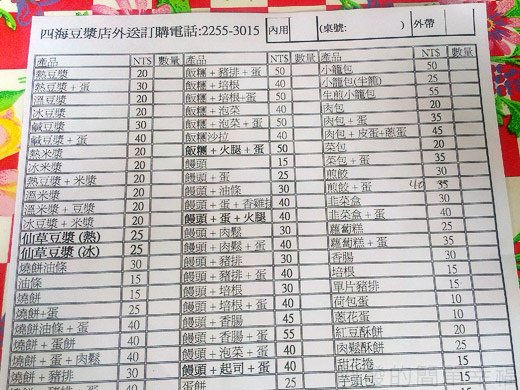 四海豆漿店外送訂購電話:2255-3015 內用 (桌號: ) 外帶
產品 NT$ 數量
熱豆漿 20
熱豆漿+蛋 30
溫豆漿 20
冰豆漿 20
鹹豆漿 30
鹹豆漿+蛋 40
熱米漿 20
冰米漿 20
熱豆漿+米漿 20
溫米漿 20
溫米漿+豆漿 20
冰豆漿+米漿 20
仙草豆漿(熱) 25
仙草豆漿(冰) 25
燒餅油條 30
油條 15
燒餅 15
燒餅+蛋 25
燒餅油條+蛋 40
燒餅+蛋餅 40
燒餅+蛋+肉鬆 40
燒餅+豬排 30
產品 NT$ 數量
飯糰+豬排+蛋 50
飯糰+培根 40
飯糰+培根+蛋 50
飯糰+泡菜 40
飯糰+泡菜+蛋 50
飯糰沙拉 40
飯糰+火腿+蛋 50
饅頭 15
饅頭+蛋 25
饅頭+油條 30
饅頭+蛋+香雞 40
饅頭+蛋+火腿 40
饅頭+肉鬆 30
饅頭+肉鬆+蛋 40
饅頭+豬排 30
饅頭+豬排+蛋 40
饅頭+培根 30
饅頭+培根+蛋 40
饅頭+香腸 45
饅頭+香腸+蛋 55
饅頭+泡菜+蛋 40
饅頭+起司+蛋 40
蛋餅 25
產品 NT$ 數量
小籠包 50
小籠包(半籠) 25
生煎小籠包 55
肉包 20
肉包+蛋 35
肉包+皮蛋+蔥蛋 45
菜包 20
菜包+蛋 35
煎餃 30
煎餃+蛋 40 35
韭菜盒 30
韭菜盒+蛋 40
蘿蔔糕 25
蘿蔔糕+蛋 35
香腸 30
培根 15
單片豬排 15
荷包蛋 10
蔥花蛋 10
紅豆酥餅 20
肉鬆酥餅 25
甜花捲 15
芋頭包 15